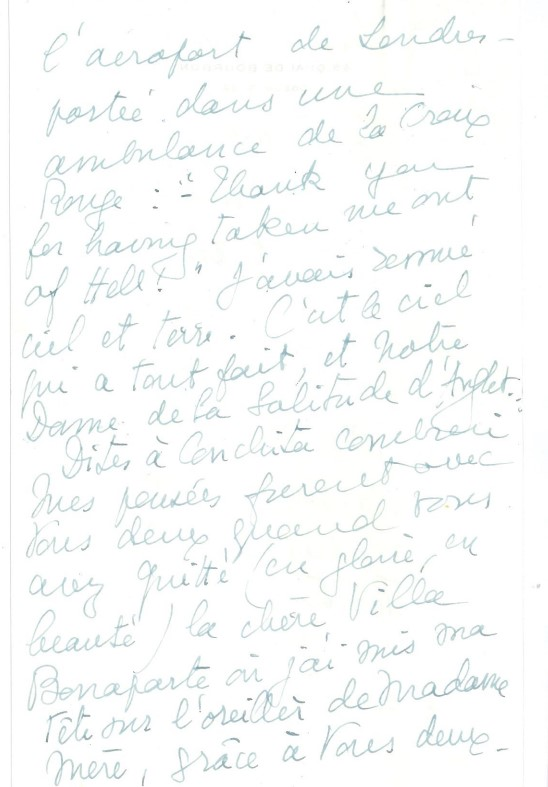 l'aéroport de Londres -
portée dans une
ambulance de la Croix
Rouge : "- Thank you
for having taken me out
of Hell!" J'avais remué
ciel et terre. C'est le ciel
qui a tout fait, et Notre
Dame de la Solitude d'Anglet.
Dites à Conchita combien
mes pensées furent avec
Vous deux quand vous
avez quitté (en gloire, en
beauté) la chère Villa
Bonaparte où j'ai mis ma
tête sur l'oreiller de Madame
Mère, grâce à Vous deux -